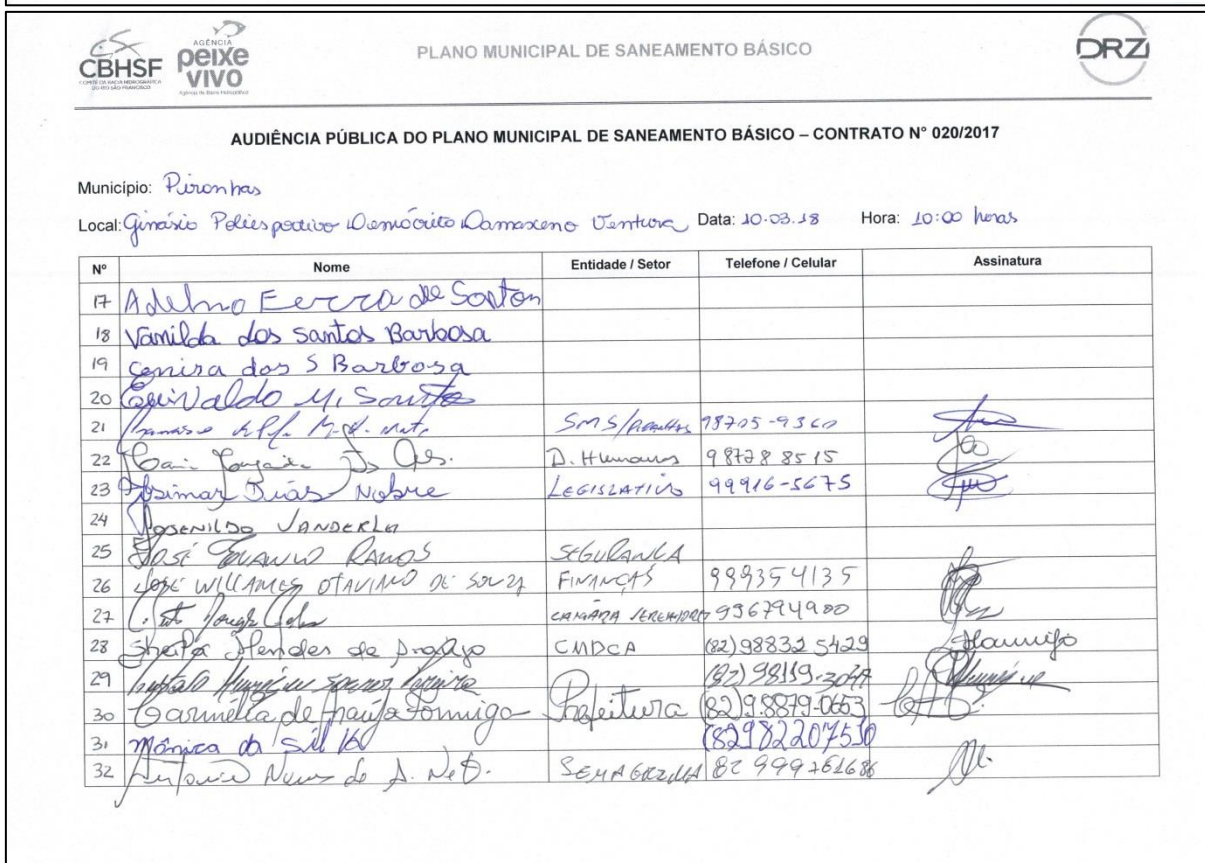 CBHSF
COMITÊ DA BACIA HIDROGRÁFICA
DO RIO SÃO FRANCISCO
AGÊNCIA
peixe
vivo
PLANO MUNICIPAL DE SANEAMENTO BÁSICO
DRZ
AUDIÊNCIA PÚBLICA DO PLANO MUNICIPAL DE SANEAMENTO BÁSICO – CONTRATO N° 020/2017
Município: Piranhas
Local: Ginásio Poliesportivo Demócrito Damasceno Ventura Data: 10.03.18 Hora: 10:00 horas
Nº Nome Entidade / Setor Telefone / Celular Assinatura
17 Adelmo
18 Vanilda dos Santos Barbosa
19 Cenira dos S Barbosa
20 M. Santos
21 SMS/Piranhas 98705-9360
22 D. Humanos 98728 8515
23 Josimar Dias Nobre LEGISLATIVO 99916-5675
24 JOSENILDO VANDERLEI
25 JOSÉ RAMOS SEGURANÇA
26 JOSÉ WILLAMES OTAVIANO DE SOUZA FINANÇAS 999354135
27 CAMARA 996794900
28 Mendes de CMDCA (82)98832 5429
29 (82) 98119-3047
30 de Araújo Formiga Prefeitura (82)9.8879-0663
31 Mônica da Silva (82982207530
32 Antonio Nunes de A. Neto. 82 999761686